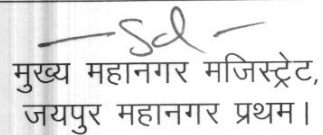 — Sd —
मुख्य महानगर मजिस्ट्रेट,
जयपुर महानगर प्रथम।